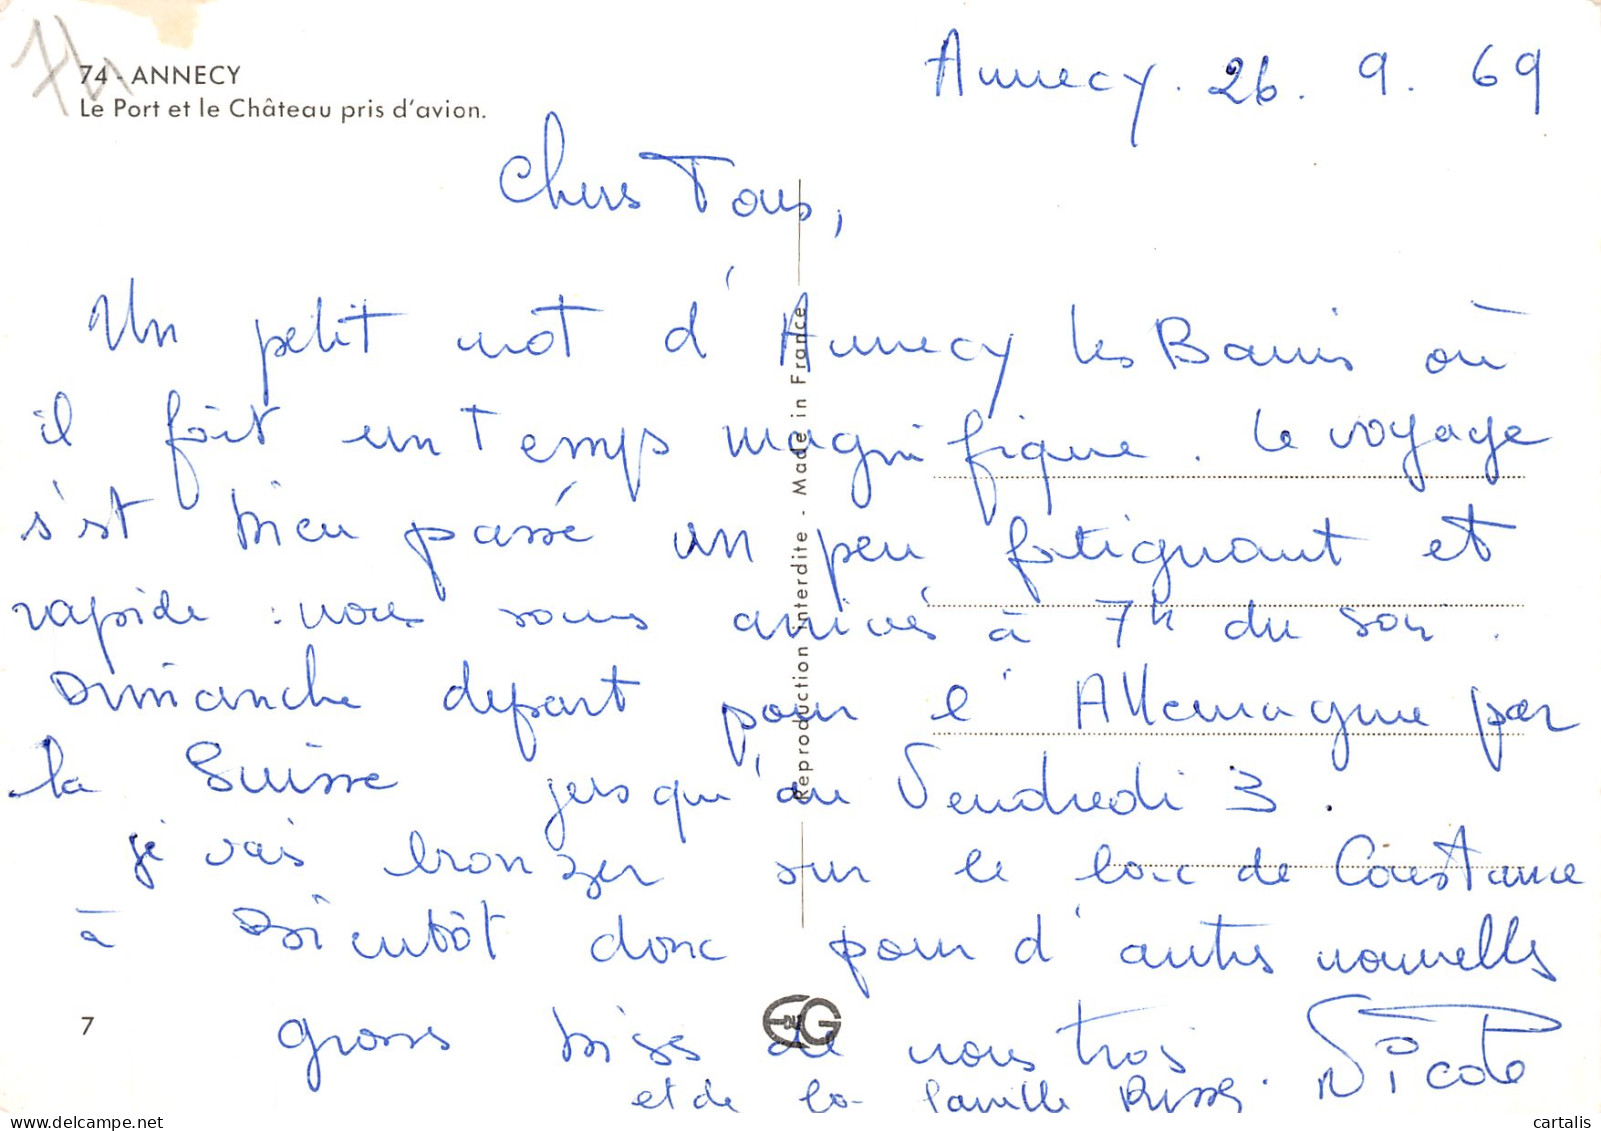 74 - ANNECY
Le Port et le Château pris d'avion.
74
Annecy. 26. 9. 69
Chers Tous,
Un petit mot d'Annecy les Bains où
il fait un Temps magnifique. Le voyage
s'est bien passé un peu fatiguant et
rapide : nous somes arrivés à 7h du soir.
Dimanche depart pour l'Allemagne par
la Suisse jusqu'au Vendredi 3.
je vais bronzer sur le lac de Constance
à Bientôt donc pour d'autres nouvelles
grosses bises de nous trois Nicole
et de la famille
Reproduction interdite - Made in France
7
cartalis